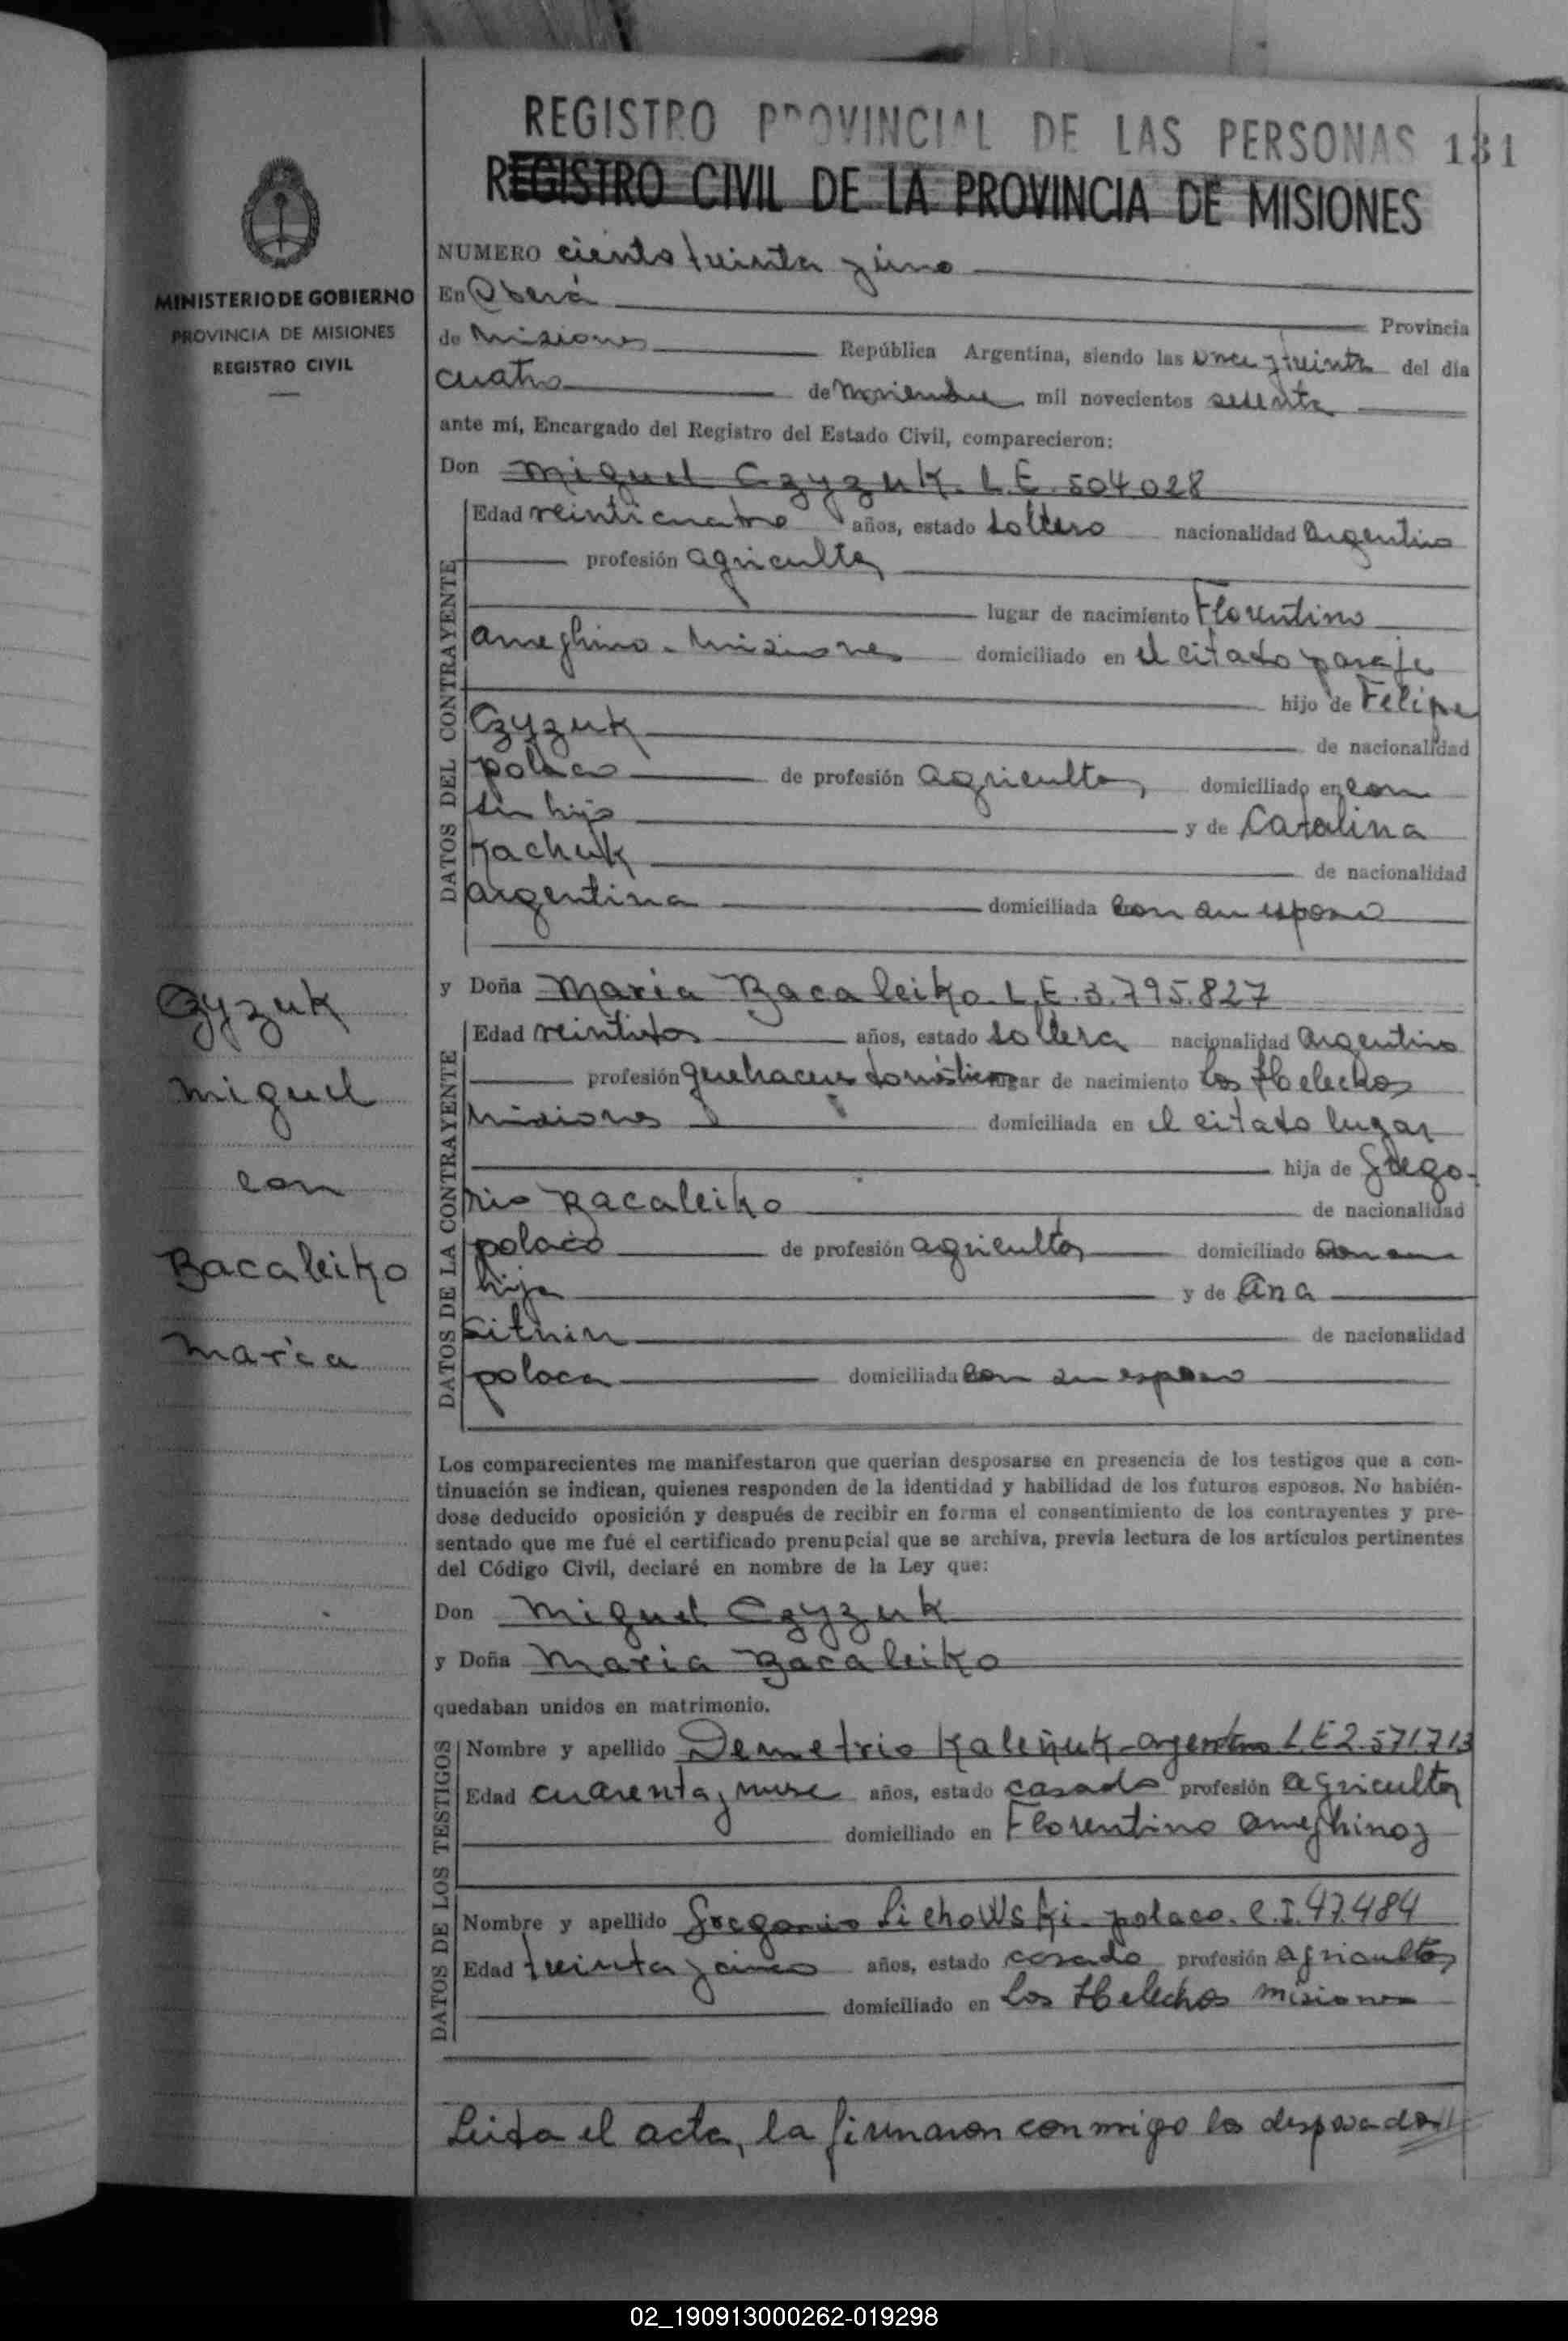 REGISTRO PROVINCIAL DE LAS PERSONAS 131
REGISTRO CIVIL DE LA PROVINCIA DE MISIONES
MINISTERIO DE GOBIERNO
PROVINCIA DE MISIONES
REGISTRO CIVIL
NUMERO ciento treinta y uno
En Oberá Provincia
de Misiones República Argentina, siendo las once y treinta del día
cuatro de Noviembre mil novecientos sesenta
ante mí, Encargado del Registro del Estado Civil, comparecieron:
Don Miguel Czyzuk. L.E. 504.028
DATOS DEL CONTRAYENTE
Edad veinticuatro años, estado soltero nacionalidad Argentino
profesión agricultor
lugar de nacimiento Florentino
Ameghino - Misiones domiciliado en el citado paraje
hijo de Felipe
Czyzuk de nacionalidad
polaco de profesión agricultor domiciliado en con
su hijo y de Catalina
Kachuk de nacionalidad
argentina domiciliada con su esposo
y Doña María Bacaleiko. L.E. 3.795.827
Czyzuk
Miguel
con
Bacaleiko
María
DATOS DE LA CONTRAYENTE
Edad veintidos años, estado soltera nacionalidad Argentina
profesión quehaceres domésticos lugar de nacimiento Los Helechos
Misiones domiciliada en el citado lugar
hija de Grego-
rio Bacaleiko de nacionalidad
polaco de profesión agricultor domiciliado con su
hija y de Ana
de nacionalidad
polaca domiciliada con su esposo
Los comparecientes me manifestaron que querían desposarse en presencia de los testigos que a con-
tinuación se indican, quienes responden de la identidad y habilidad de los futuros esposos. No habién-
dose deducido oposición y después de recibir en forma el consentimiento de los contrayentes y pre-
sentado que me fué el certificado prenupcial que se archiva, previa lectura de los artículos pertinentes
del Código Civil, declaré en nombre de la Ley que:
Don Miguel Czyzuk
y Doña María Bacaleiko
quedaban unidos en matrimonio.
DATOS DE LOS TESTIGOS
Nombre y apellido Demetrio Kaleñuk - argentino L.E 2.571.713
Edad cuarenta y nueve años, estado casado profesión agricultor
domiciliado en Florentino Ameghino y
Nombre y apellido Gregorio Lichowski - polaco. C.I. 47.484
Edad treinta y cinco años, estado casado profesión agricultor
domiciliado en Los Helechos Misiones
Leida el acta, la firmaron conmigo los desposados//
02_190913000262-019298